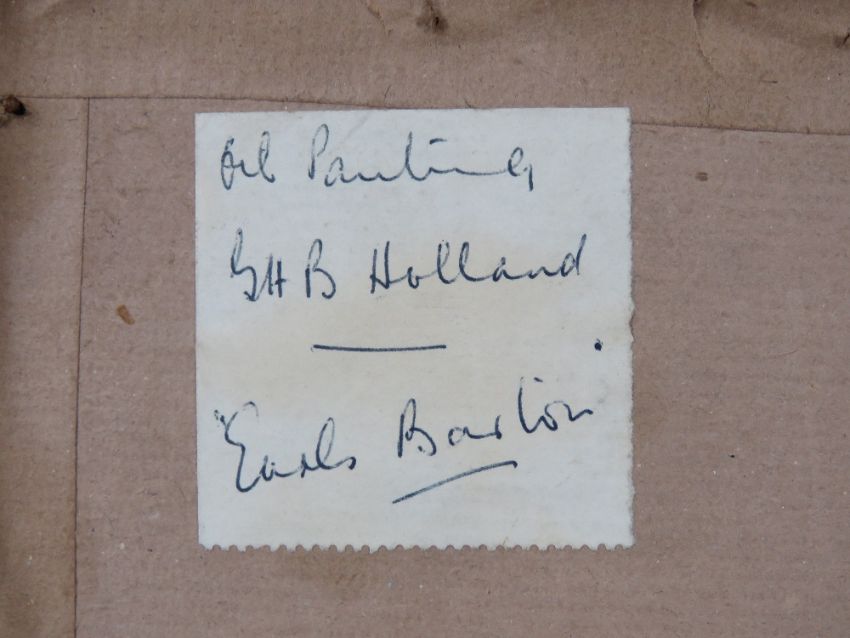 Oil Painting
GHB Holland
"Earls Barton"